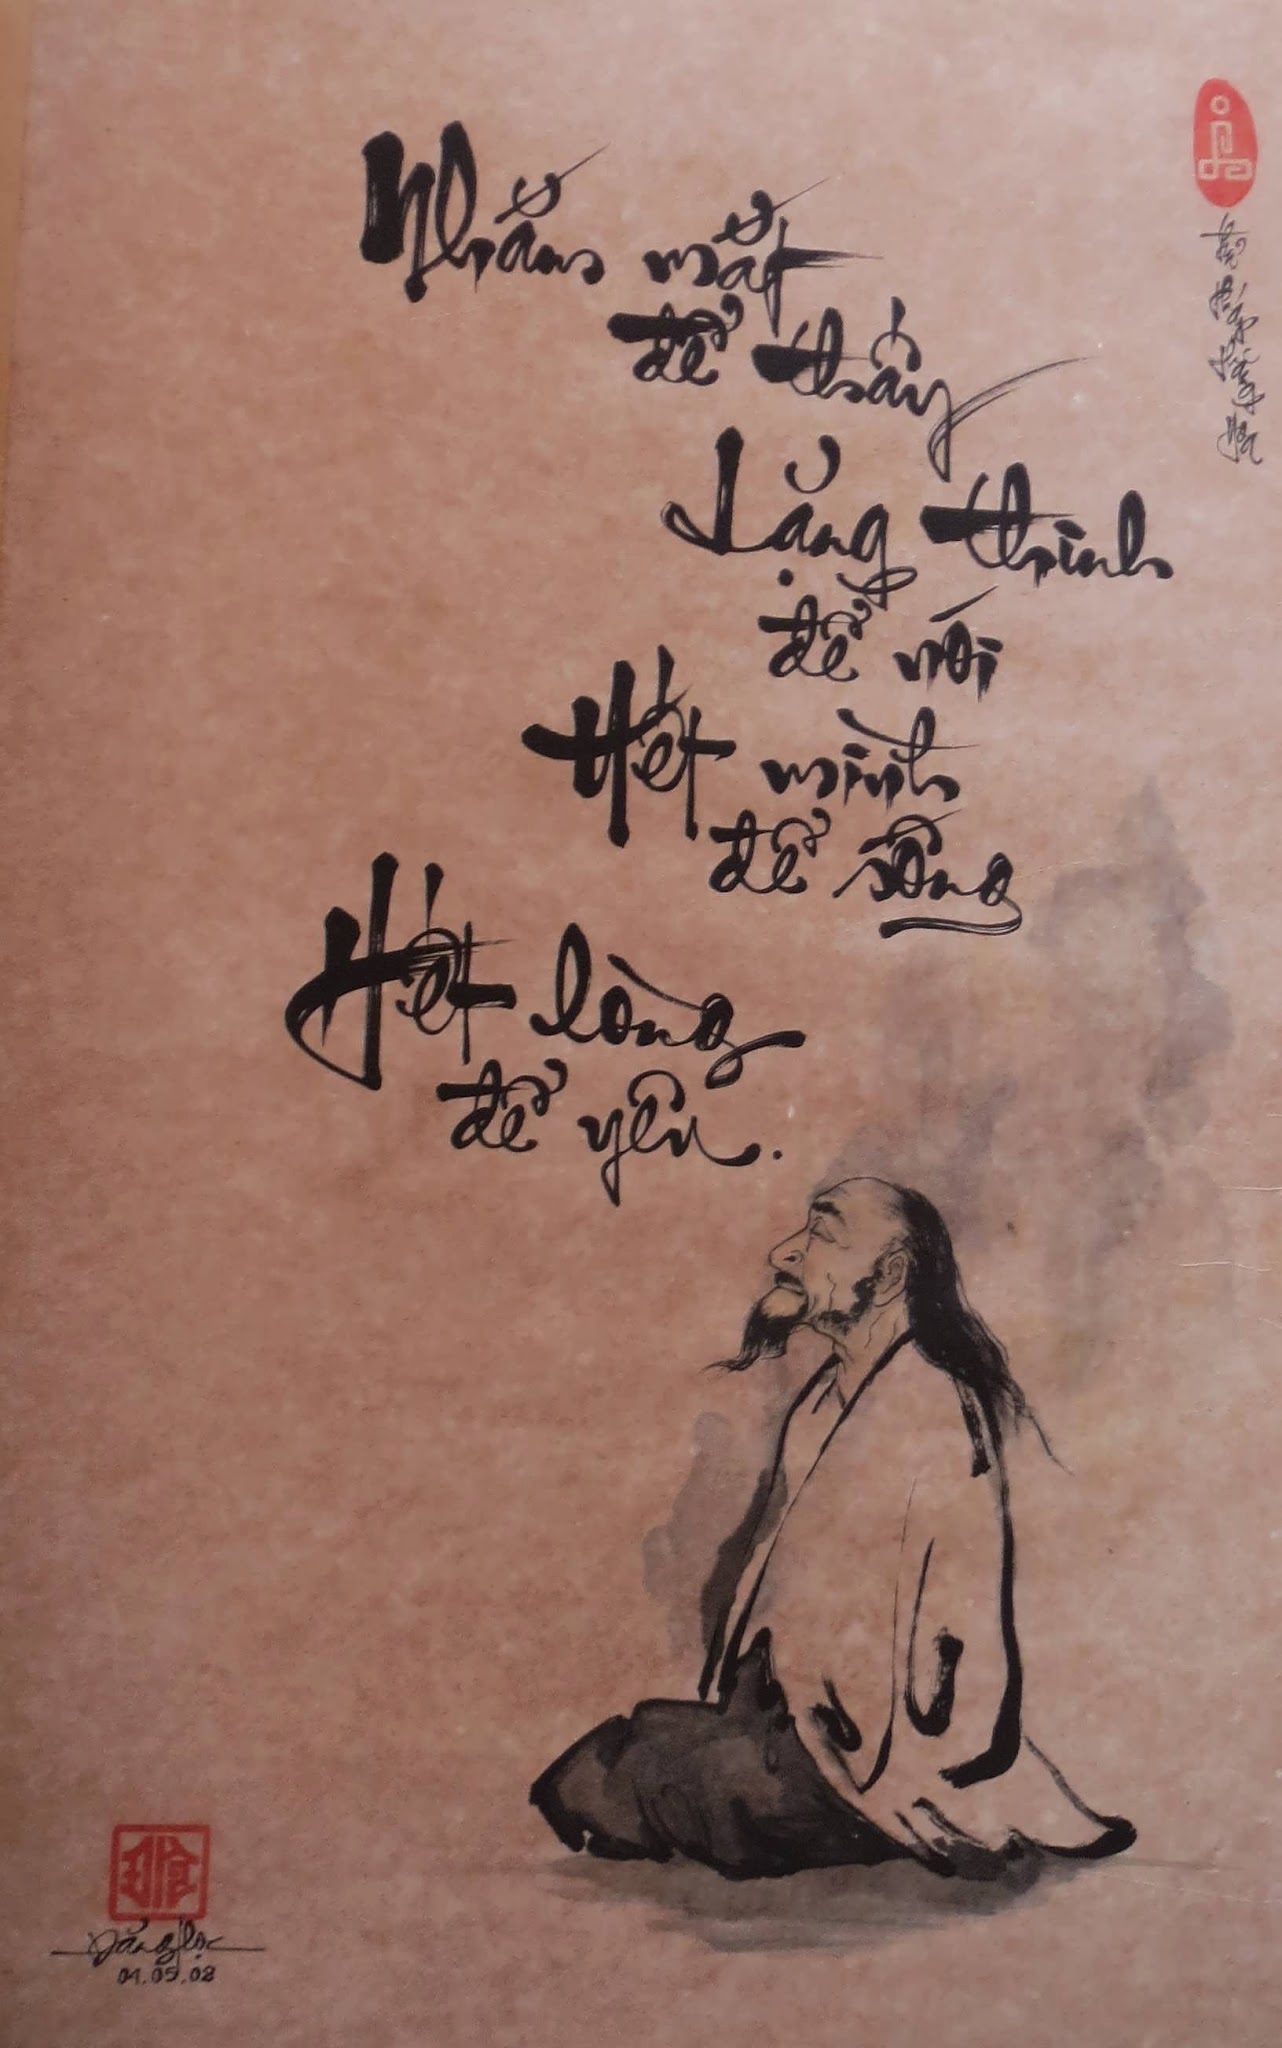 Nhắm mắt
để thấy
Lặng thinh
để nói
Hết mình
để sống
Hết lòng
để yên.
Đăng Học
01.05.08